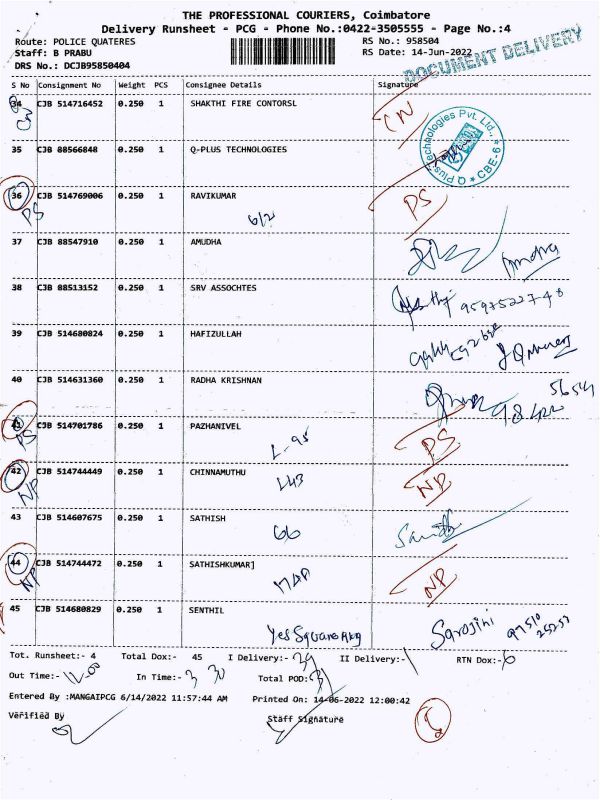 THE PROFESSIONAL COURIERS, Coimbatore
Delivery Runsheet - PCG - Phone No.:0422-3505555 - Page No.:4
Route: POLICE QUATERES RS No.: 958504
Staff: B PRABU RS Date: 14-Jun-2022
DRS No.: DCJB95850404
DOCUMENT DELIVERY
S No Consignment No Weight PCS Consignee Details Signature
34 CJB 514716452 0.250 1 SHAKTHI FIRE CONTORSL CN
CN
35 CJB 88566848 0.250 1 Q-PLUS TECHNOLOGIES
Q Plus Technologies Pvt. Ltd., CBE-6
36 CJB 514769006 0.250 1 RAVIKUMAR PS
PS 6/2
37 CJB 88547910 0.250 1 AMUDHA
38 CJB 88513152 0.250 1 SRV ASSOCHTES
9597522748
39 CJB 514680824 0.250 1 HAFIZULLAH
40 CJB 514631360 0.250 1 RADHA KRISHNAN
41 CJB 514701786 0.250 1 PAZHANIVEL PS
PS L-95
42 CJB 514744449 0.250 1 CHINNAMUTHU NP
NP L43
43 CJB 514607675 0.250 1 SATHISH
66
44 CJB 514744472 0.250 1 SATHISHKUMAR] NP
NP
45 CJB 514680829 0.250 1 SENTHIL Sarojini
Tot. Runsheet:- 4 Total Dox:- 45 I Delivery:- II Delivery:- RTN Dox:- 6
Out Time:- In Time:- 3 30 Total POD:-
Entered By :MANGAIPCG 6/14/2022 11:57:44 AM Printed On: 14-06-2022 12:00:42
Verified By Staff Signature